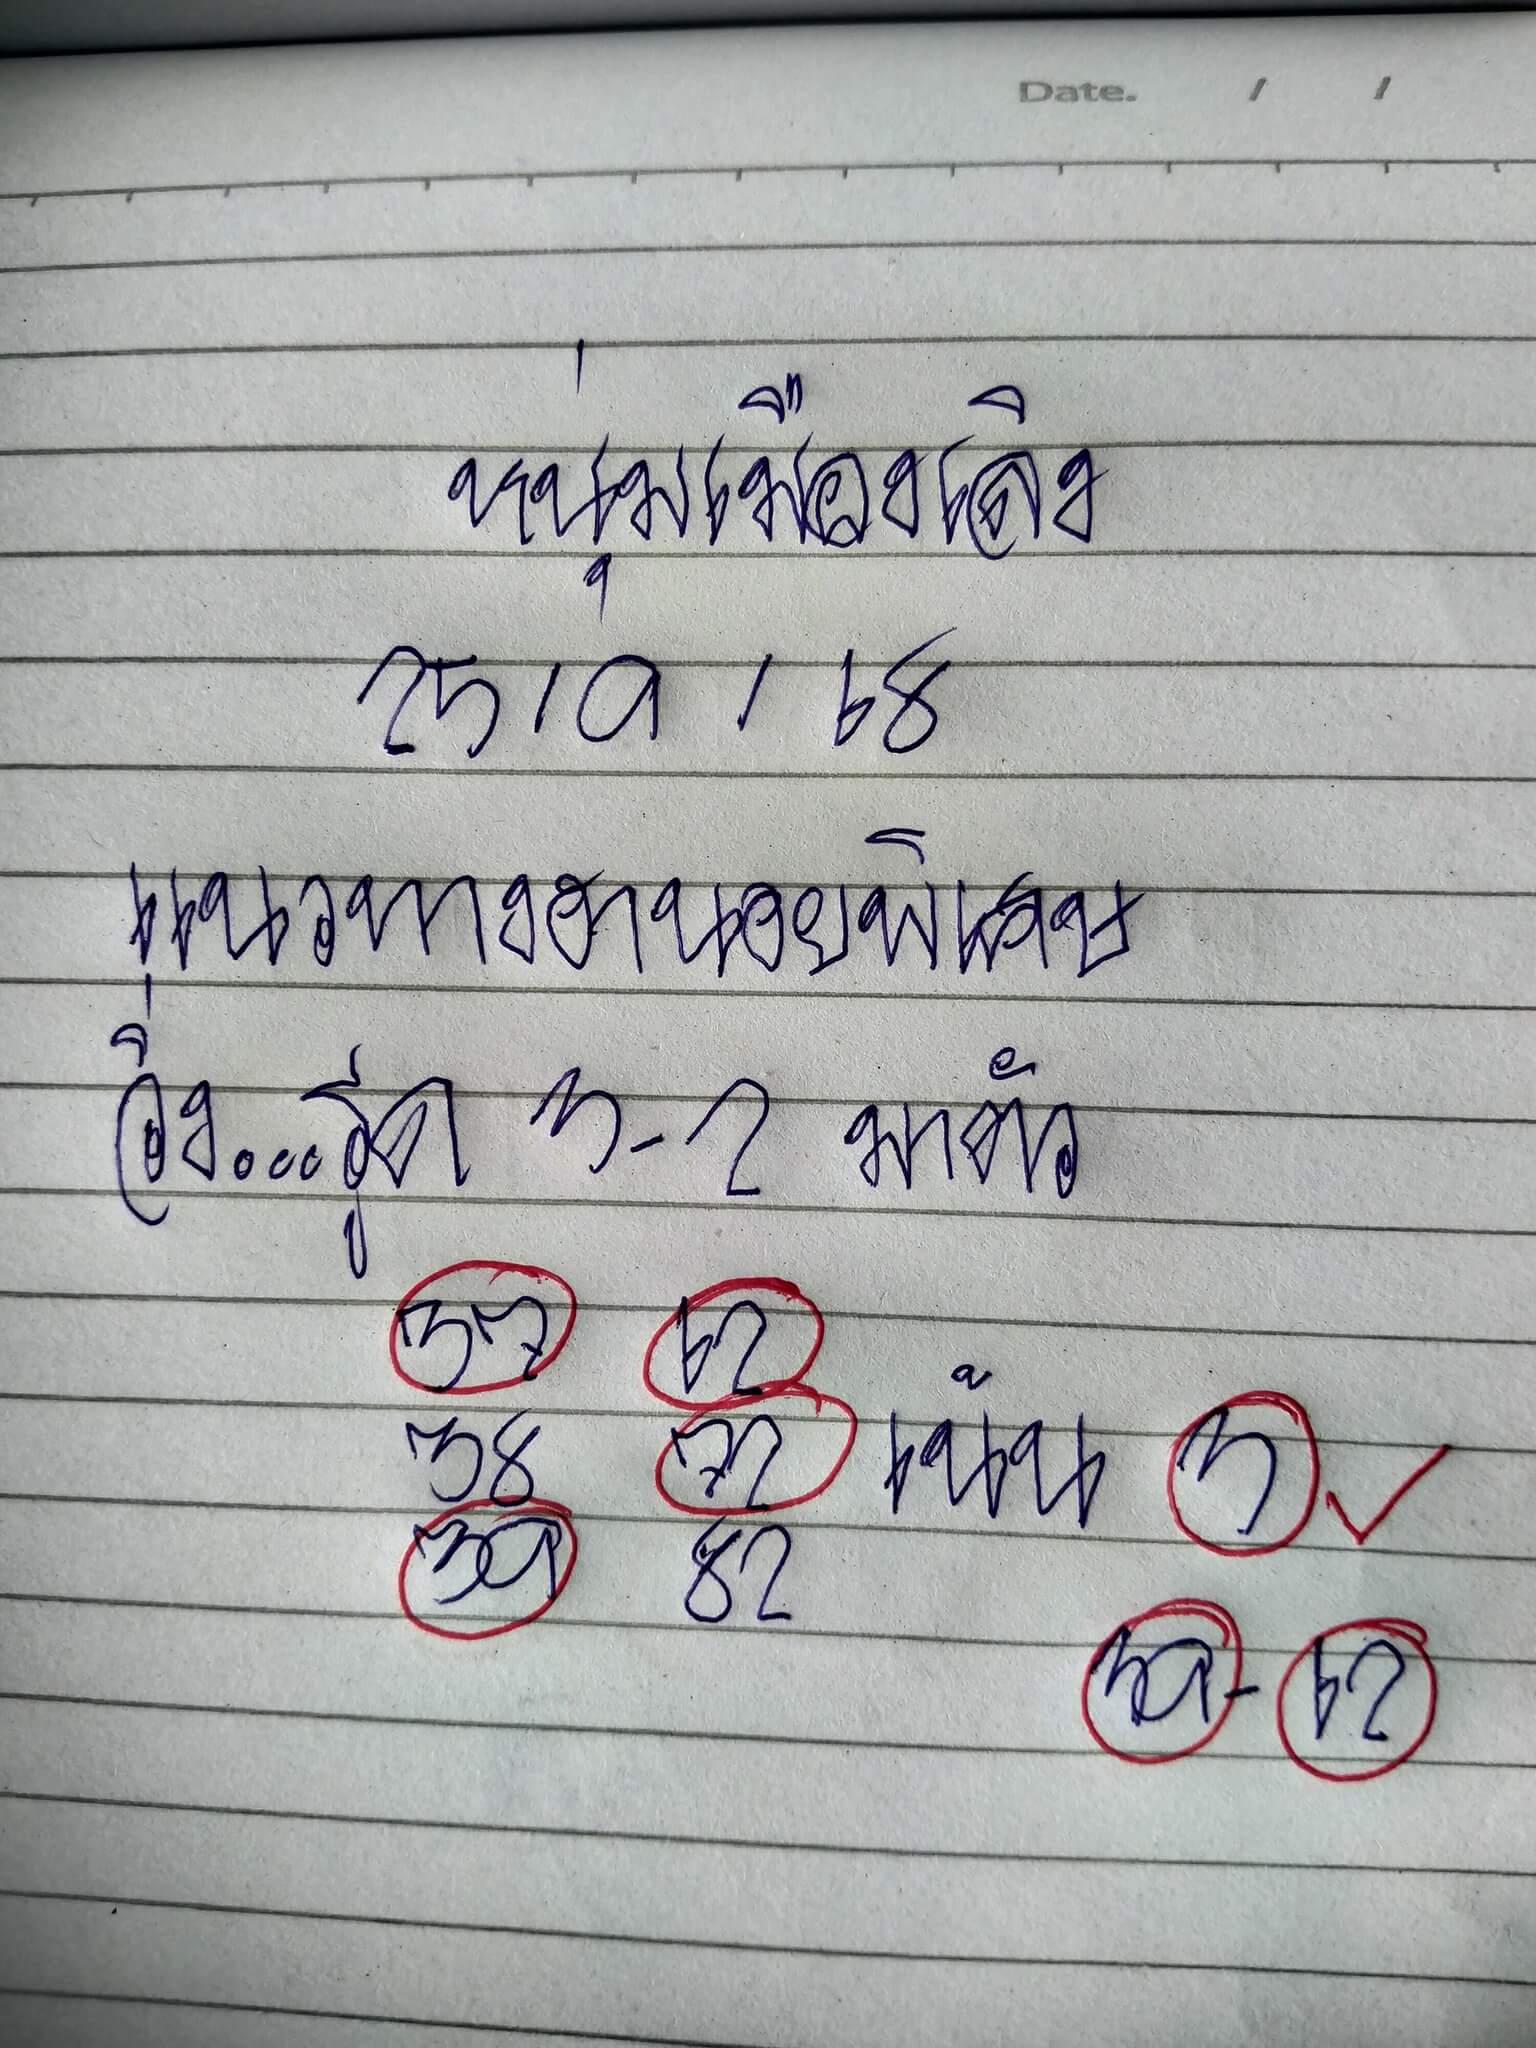 Date. / /
หนุ่มเมืองเลิง
25/9/68
แนวทางฮานอยพิเศษ
วิ่ง...รูด 3-2 มาตัว
37 62
38 72 เน้น 3
39 82
39-62